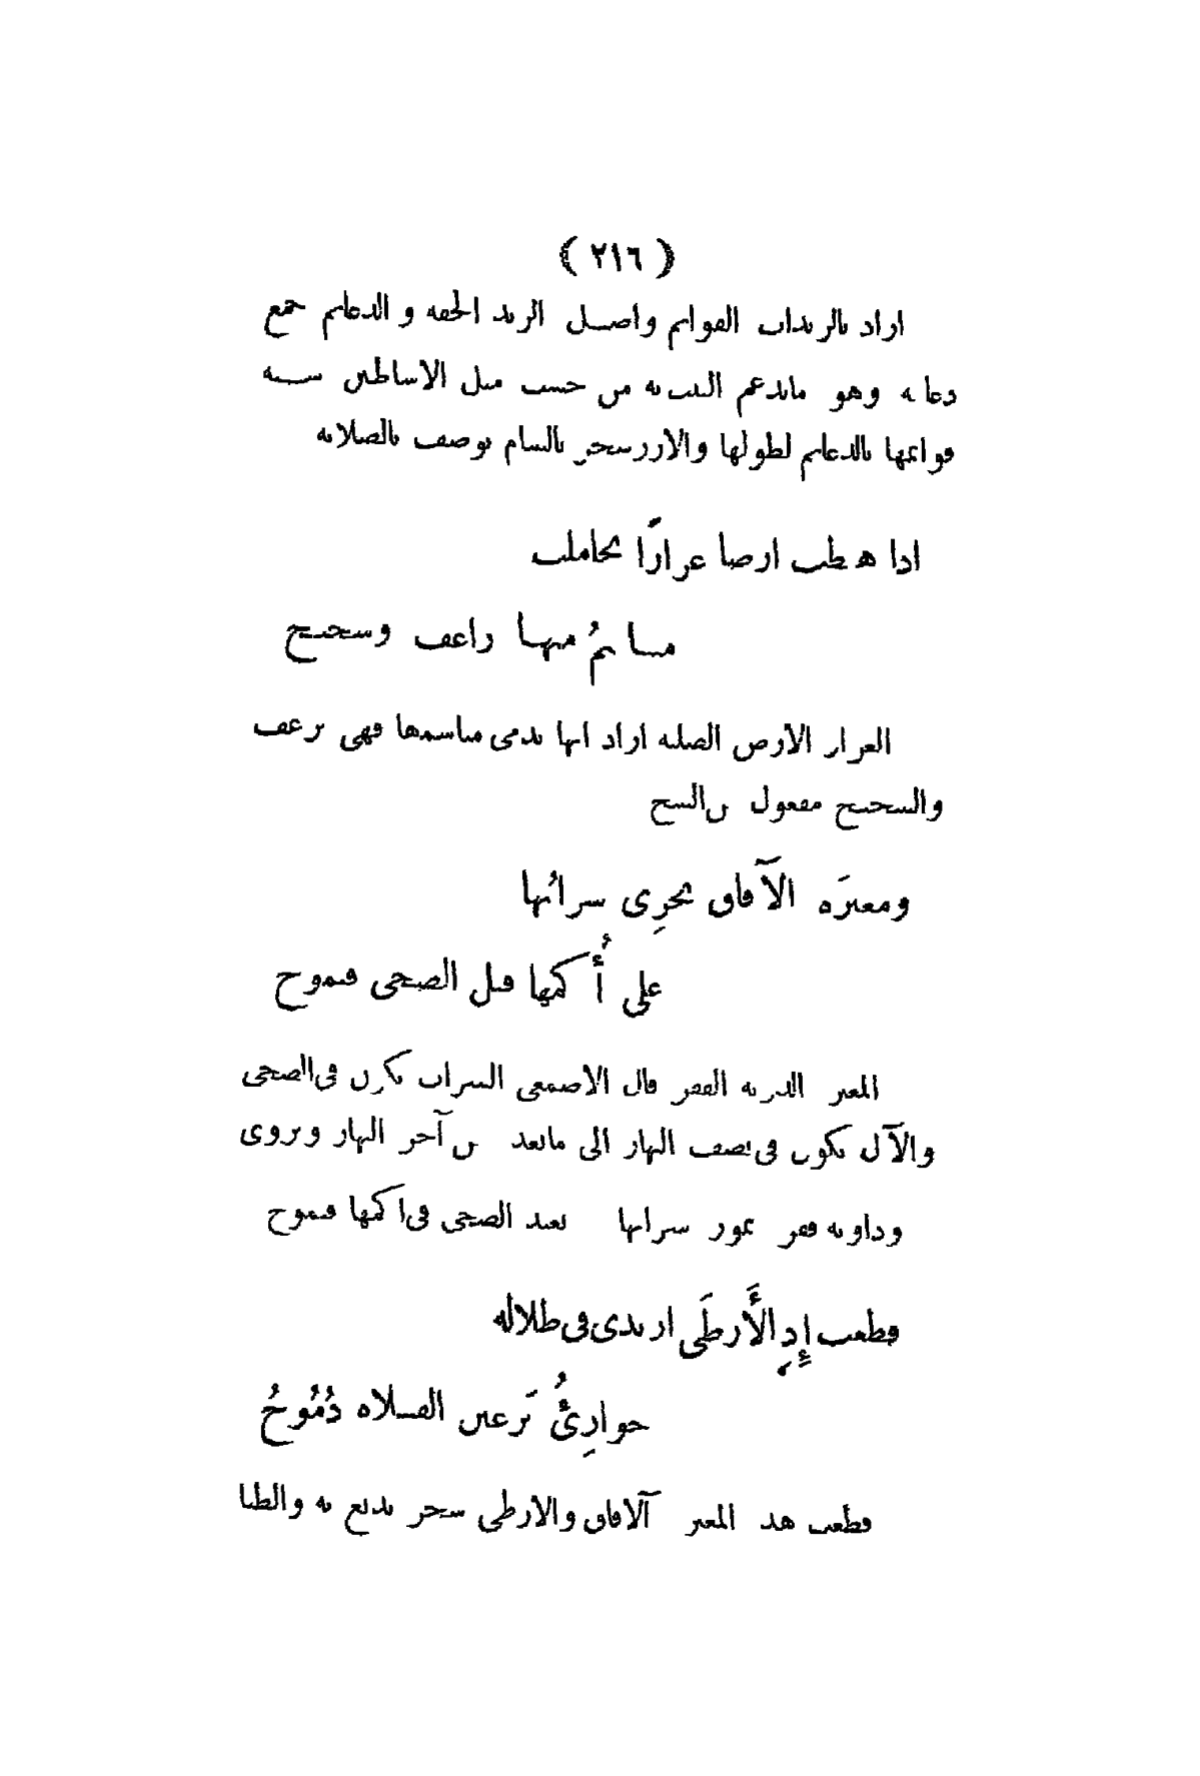 ﴿ ٢١٦ ﴾
اراد بالربذات القوائم واصل الربذ الخفة والدعايم جمع
دعامة وهو مايدعم البيت به من خشب مثل الاساطين شبه
قوائمها بالدعايم لطولها والارز شجر بالشام يوصف بالصلابة
اذا هبطت ارضا عزازًا تحاملت
مناسمُ منها راعف وشحيح
العزاز الارض الصلبة اراد انها تدمى مناسمها فهى ترعف
والشحيح مفعول من الشح
ومغبرَة الآفاق يجرِى سرابُها
على أُكمها قبل الضحى فيموح
المغبر القفر قال الاصمعى السراب يكون فى الضحى
والآل يكون فى نصف النهار الى مابعد من آخر النهار ويروى
وداوية قفر يمور سرابها بعيد الضحى فى اكمها فيموح
قطعت إِذِ الأَرطَى ارتدى فى ظلاله
جوازِئُ يَرعين الفلاة دُمُوحُ
قطعت هذ المغبر الآفاق والارطى شجر يدبغ به والظبا